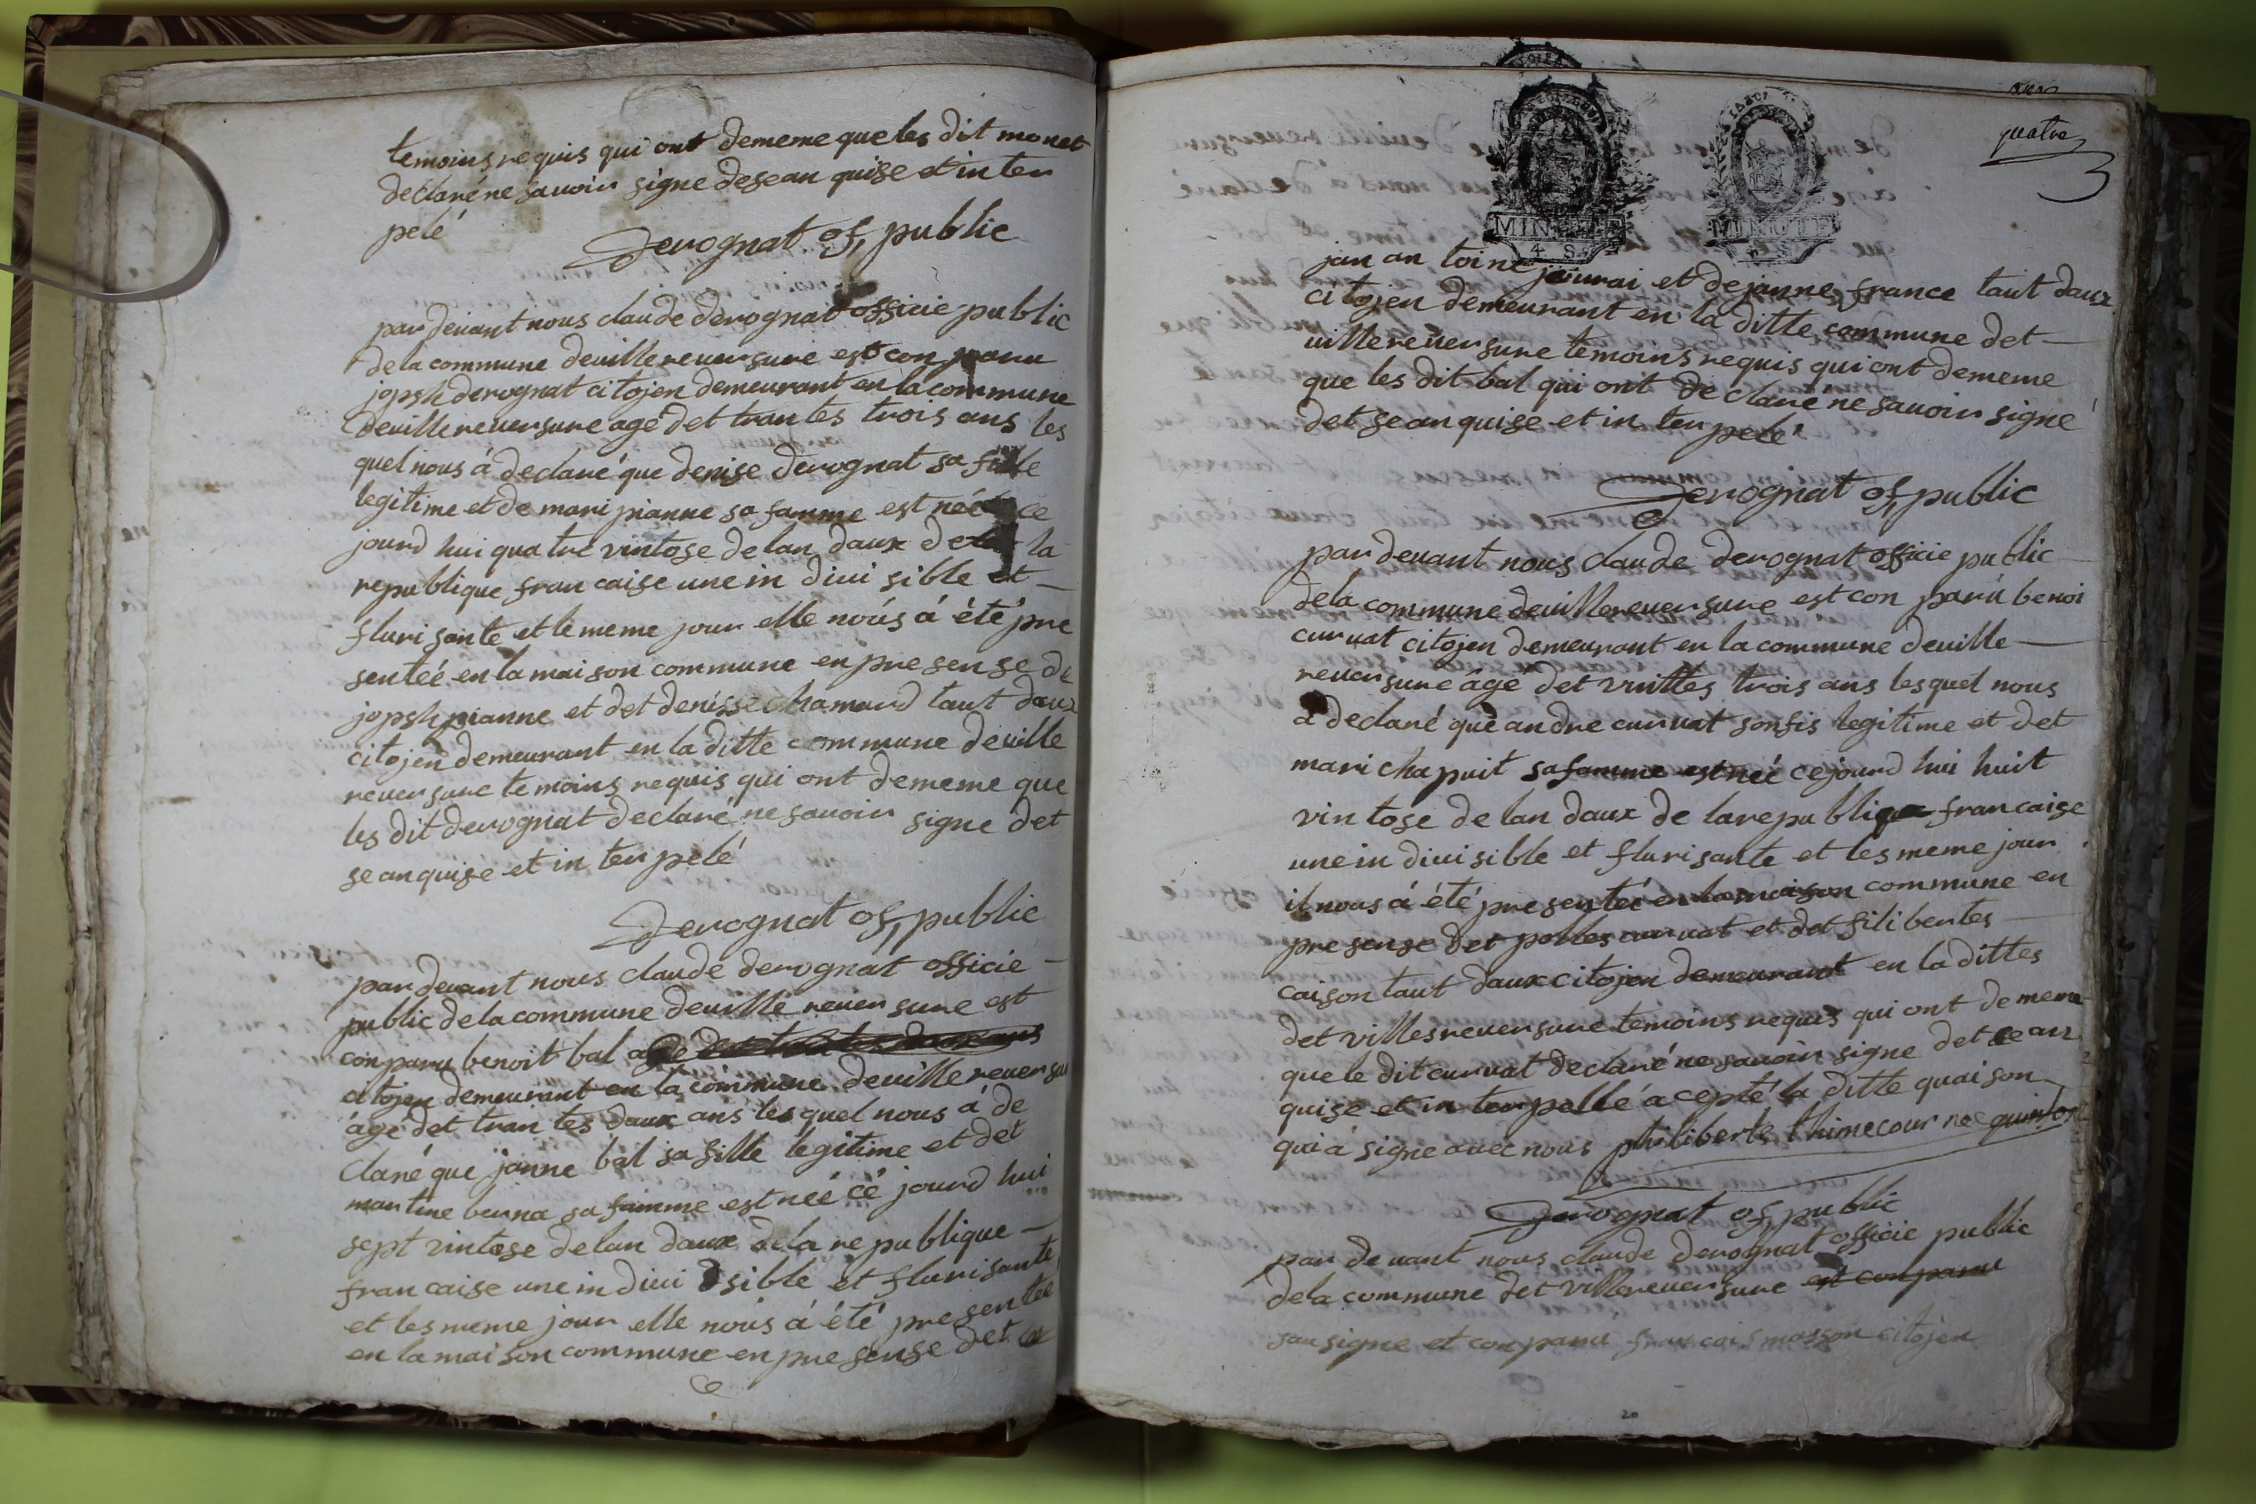 temoins requis qui ont dememe que les dit monet
declaré ne savoir signe desean quise et in ter
pelé
Derognat of, public
par devant nous claude derognat officie public
de la commune devillereversure est con paru
jopsh derognat citojen demeurant en la commune
devillereversure age det trantes trois ans les
quel nous á declaré que denise derognat sa fille
legitime et de mari pianne sa famme est néé ce
jourd hui quatre vintose delan daux de la
republique francaise une in divi sible et
flurisante et le meme jour elle nous á été pre
sentéé en la maison commune en pre sense de
jopsh pianne et det denisse chamard taut daux
citojen demeurant en la ditte commune deville
reversure temoins requis qui ont dememe que
les dit derognat declaré ne savoir signe det
sean quise et in ter pelé
Derognat of, public
par devant nous claude derognat officie
public de la commune deville reversure est
conparu benoit bal
citojen demeurant en la commune devillereversu
áge det tran tes daux ans les quel nous á de
claré que janne bal sa fille legitime et det
martine berna sa famme est néé cé jourd hui
sept vintose delan daux dela re publique
francaise une in divi sible et flurisante
et les meme jour elle nous á été presentée
en la maison commune en pre sense det
quatre
MINUTE
4 S.
MINUTE
jan an toine jourai et de janne france taut daux
citojen demeurant en la ditte commune det
villereversure temoins requis qui ont dememe
que les dit bal qui ont de claré ne savoir signé
det sean quise et in ter pelé
Derognat of, public
par devant nous claude derognat officie public
dela commune devillereversure est con parú benoi
curvat citojen demeurant en la commune deville
reversure âgé det vnittes trois ans lesquel nous
a declaré que andre curvat son fis legitime et det
mari chapuit sa famme est néé ce jourd hui huit
vin tose de lan daux de la republique francaise
une in divisible et flurisante et les meme jour
il nous á été pre sentéé en la maison commune en
pre sense det curvat et det filibertes
caison taut daux citojen demeurant en la dittes
det villesreversure temoins requis qui ont dememe
que le dit curvat declaré ne savoir signe det sean
quise et in terpellé á cepté la ditte quaison
qui á signe avec nous philiberte thimecour ne quinson
Derognat of, public
par devant nous claude derognat officie public
dela commune det villereversure est conparu
sousigne et conparu francais masson citojen
20